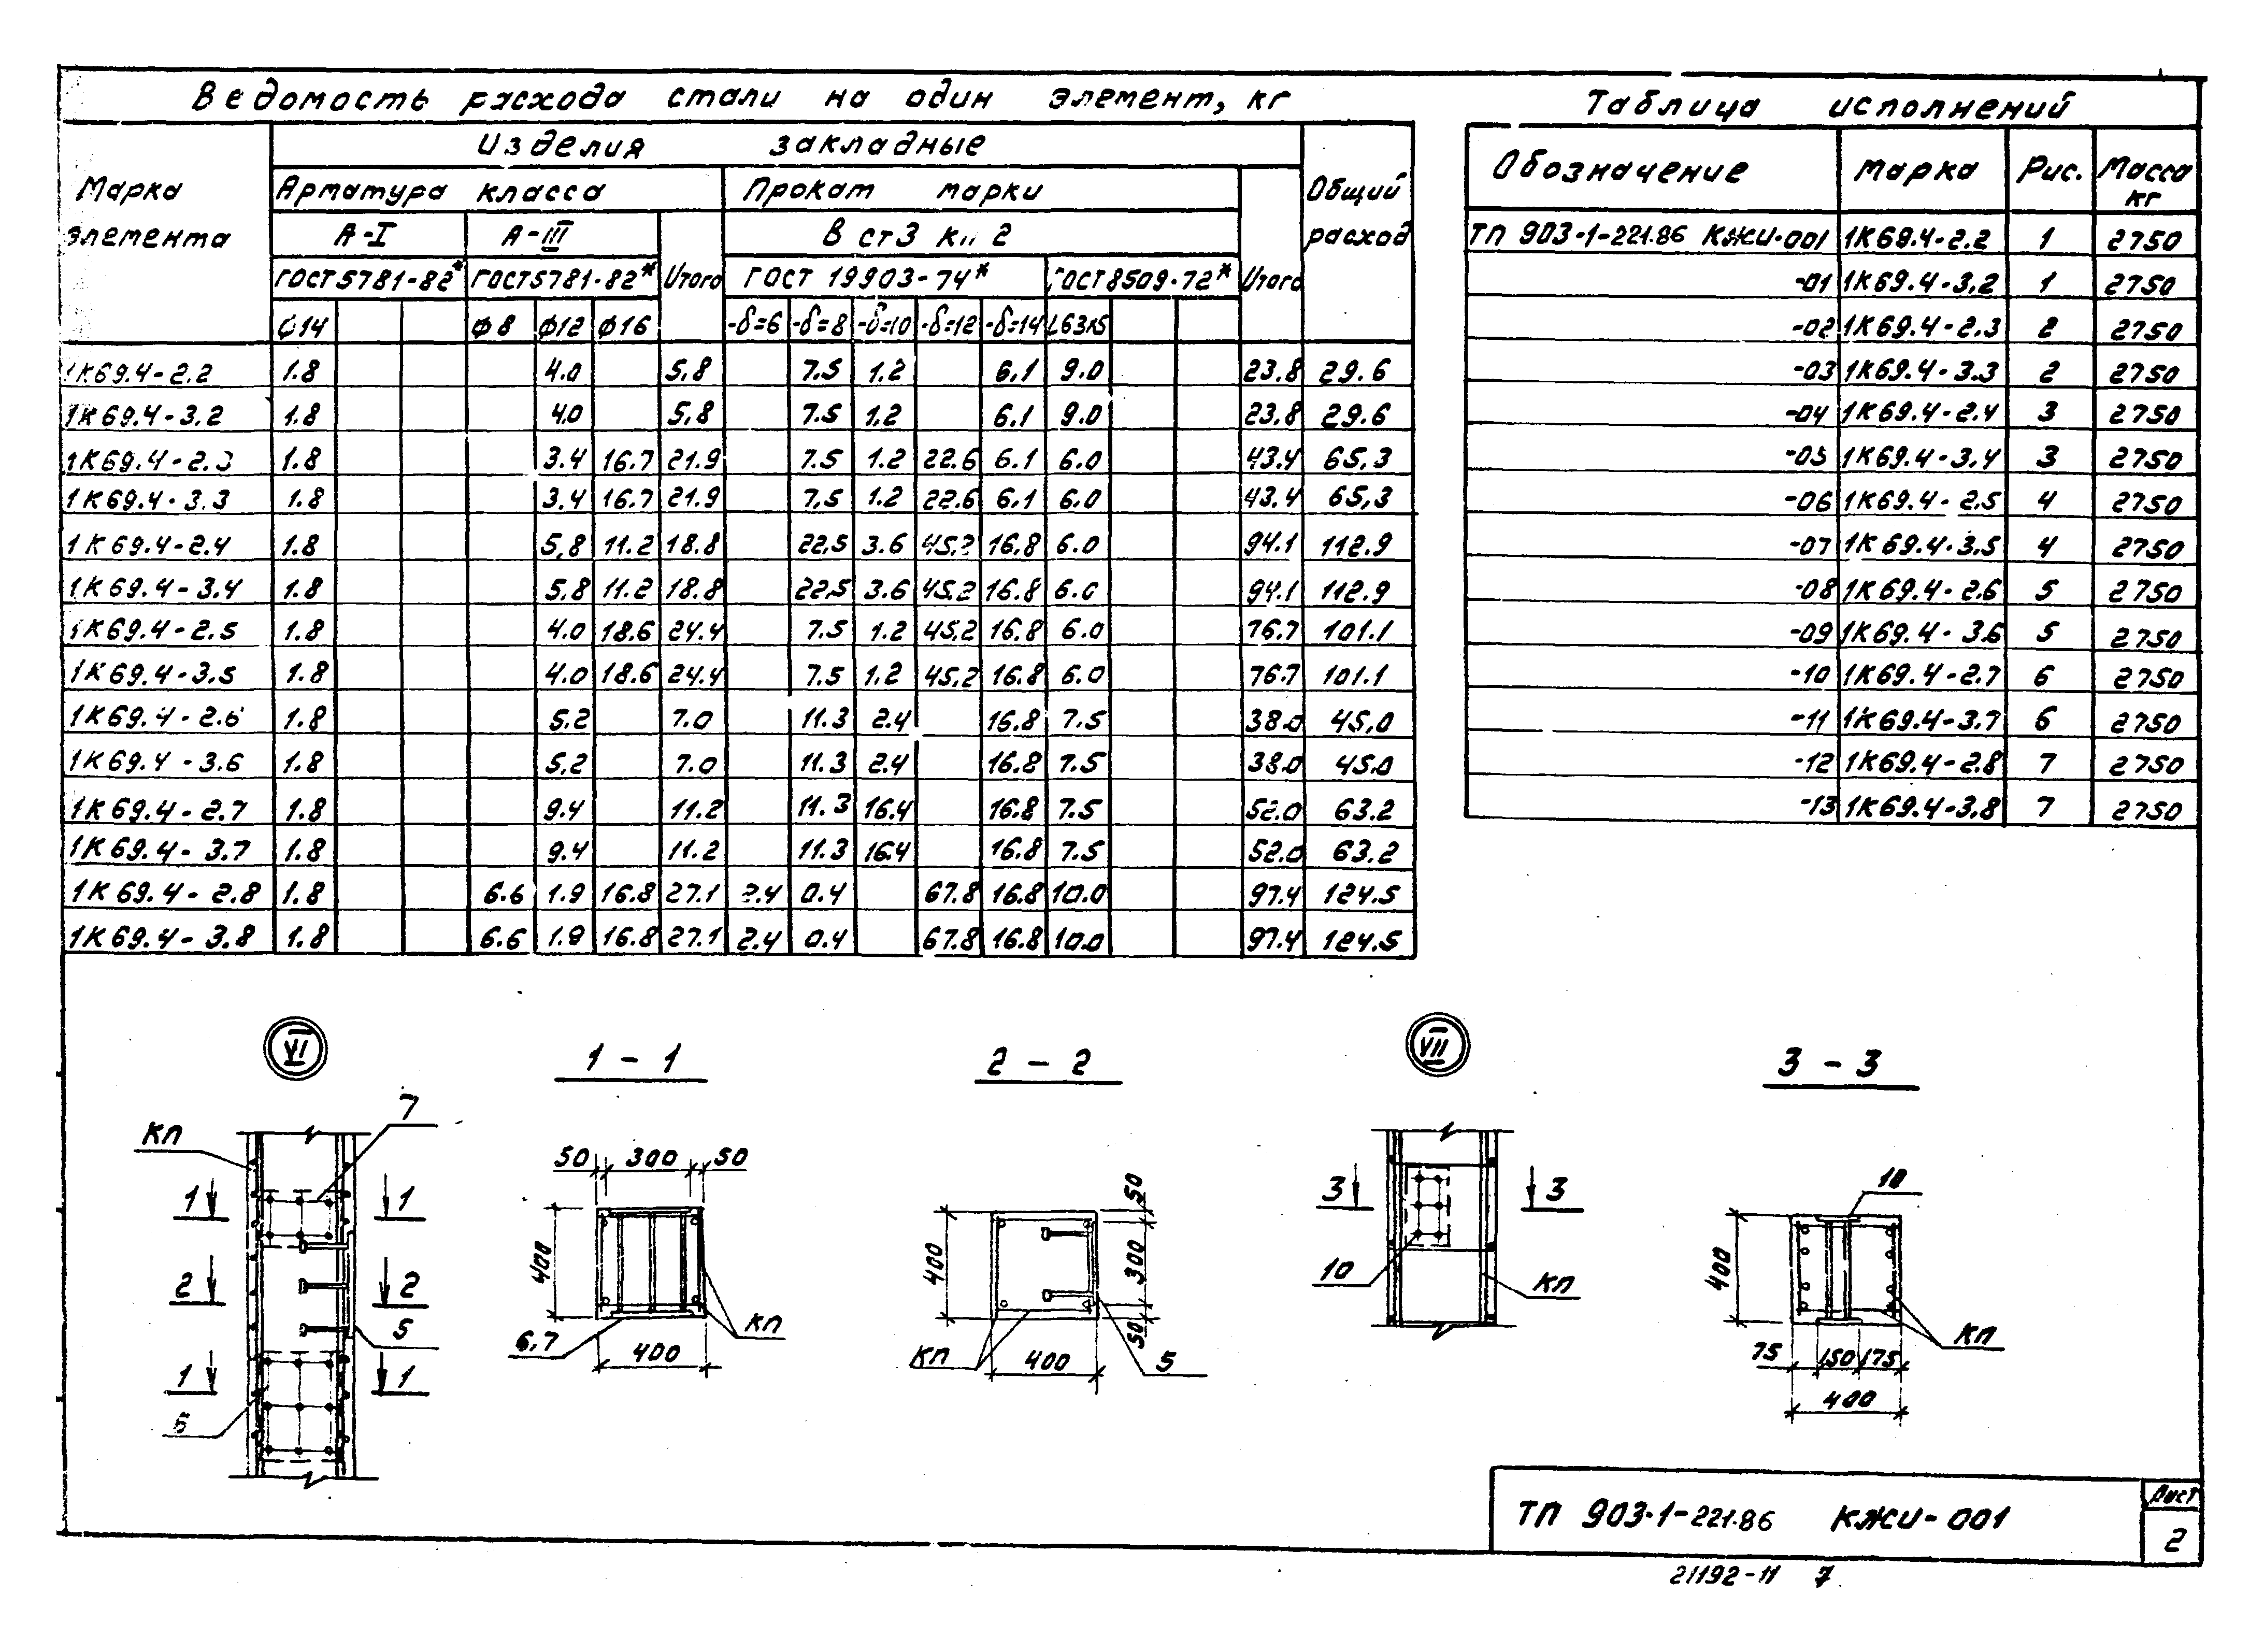 Ведомость расхода стали на один элемент, кг
Марка элемента
Изделия закладные
Общий расход
Арматура класса
Прокат марки
А-I
А-III
В ст3 кп 2
ГОСТ 5781-82*
ГОСТ 5781-82*
Итого
ГОСТ 19903-74*
ГОСТ 8509-72*
Итого
ф14 ф8 ф12 ф16 -δ=6 -δ=8 -δ=10 -δ=12 -δ=14 L63x5
1К69.4-2.2 1.8 4.0 5,8 7.5 1.2 6,1 9.0 23,8 29.6
1К69.4-3.2 1.8 4.0 5,8 7.5 1.2 6.1 9.0 23,8 29.6
1К69.4-2.3 1.8 3.4 16.7 21.9 7.5 1.2 22.6 6.1 6.0 43.4 65,3
1К69.4-3.3 1.8 3.4 16.7 21.9 7,5 1.2 22.6 6,1 6.0 43.4 65,3
1К69.4-2.4 1.8 5,8 11.2 18.8 22,5 3.6 45,2 16.8 6.0 94.1 112.9
1К69.4-3.4 1.8 5,8 11.2 18.8 22,5 3.6 45,2 16.8 6.0 94.1 112.9
1К69.4-2.5 1.8 4.0 18.6 24.4 7.5 1.2 45,2 16.8 6.0 76.7 101.1
1К69.4-3.5 1.8 4.0 18.6 24.4 7.5 1.2 45,2 16.8 6.0 76.7 101.1
1К69.4-2.6 1.8 5.2 7.0 11.3 2.4 16.8 7.5 38.0 45,0
1К69.4-3.6 1.8 5,2 7.0 11.3 2.4 16.8 7.5 38.0 45.0
1К69.4-2.7 1.8 9.4 11.2 11.3 16.4 16.8 7.5 52.0 63.2
1К69.4-3.7 1.8 9.4 11.2 11.3 16.4 16.8 7.5 52.0 63.2
1К69.4-2.8 1.8 6.6 1.9 16.8 27.1 2.4 0.4 67.8 16.8 10.0 97.4 124.5
1К69.4-3.8 1.8 6.6 1.9 16.8 27.1 2.4 0.4 67.8 16.8 10.0 97.4 124.5
Таблица исполнений
Обозначение Марка Рис. Масса кг
ТП 903-1-221.86 КЖИ-001 1К69.4-2.2 1 2750
-01 1К69.4-3.2 1 2750
-02 1К69.4-2.3 2 2750
-03 1К69.4-3.3 2 2750
-04 1К69.4-2.4 3 2750
-05 1К69.4-3.4 3 2750
-06 1К69.4-2.5 4 2750
-07 1К69.4-3.5 4 2750
-08 1К69.4-2.6 5 2750
-09 1К69.4-3.6 5 2750
-10 1К69.4-2.7 6 2750
-11 1К69.4-3.7 6 2750
-12 1К69.4-2.8 7 2750
-13 1К69.4-3.8 7 2750
VI
7
КП
1 1
2 2
5
1 1
6
1 - 1
50 300 50
400
6,7
КП
400
2 - 2
50
400
300
50
КП
400
5
VII
3 3
10
КП
3 - 3
10
400
КП
75 150 175
400
ТП 903-1-221.86 КЖИ-001
Лист
2
21192-11 7